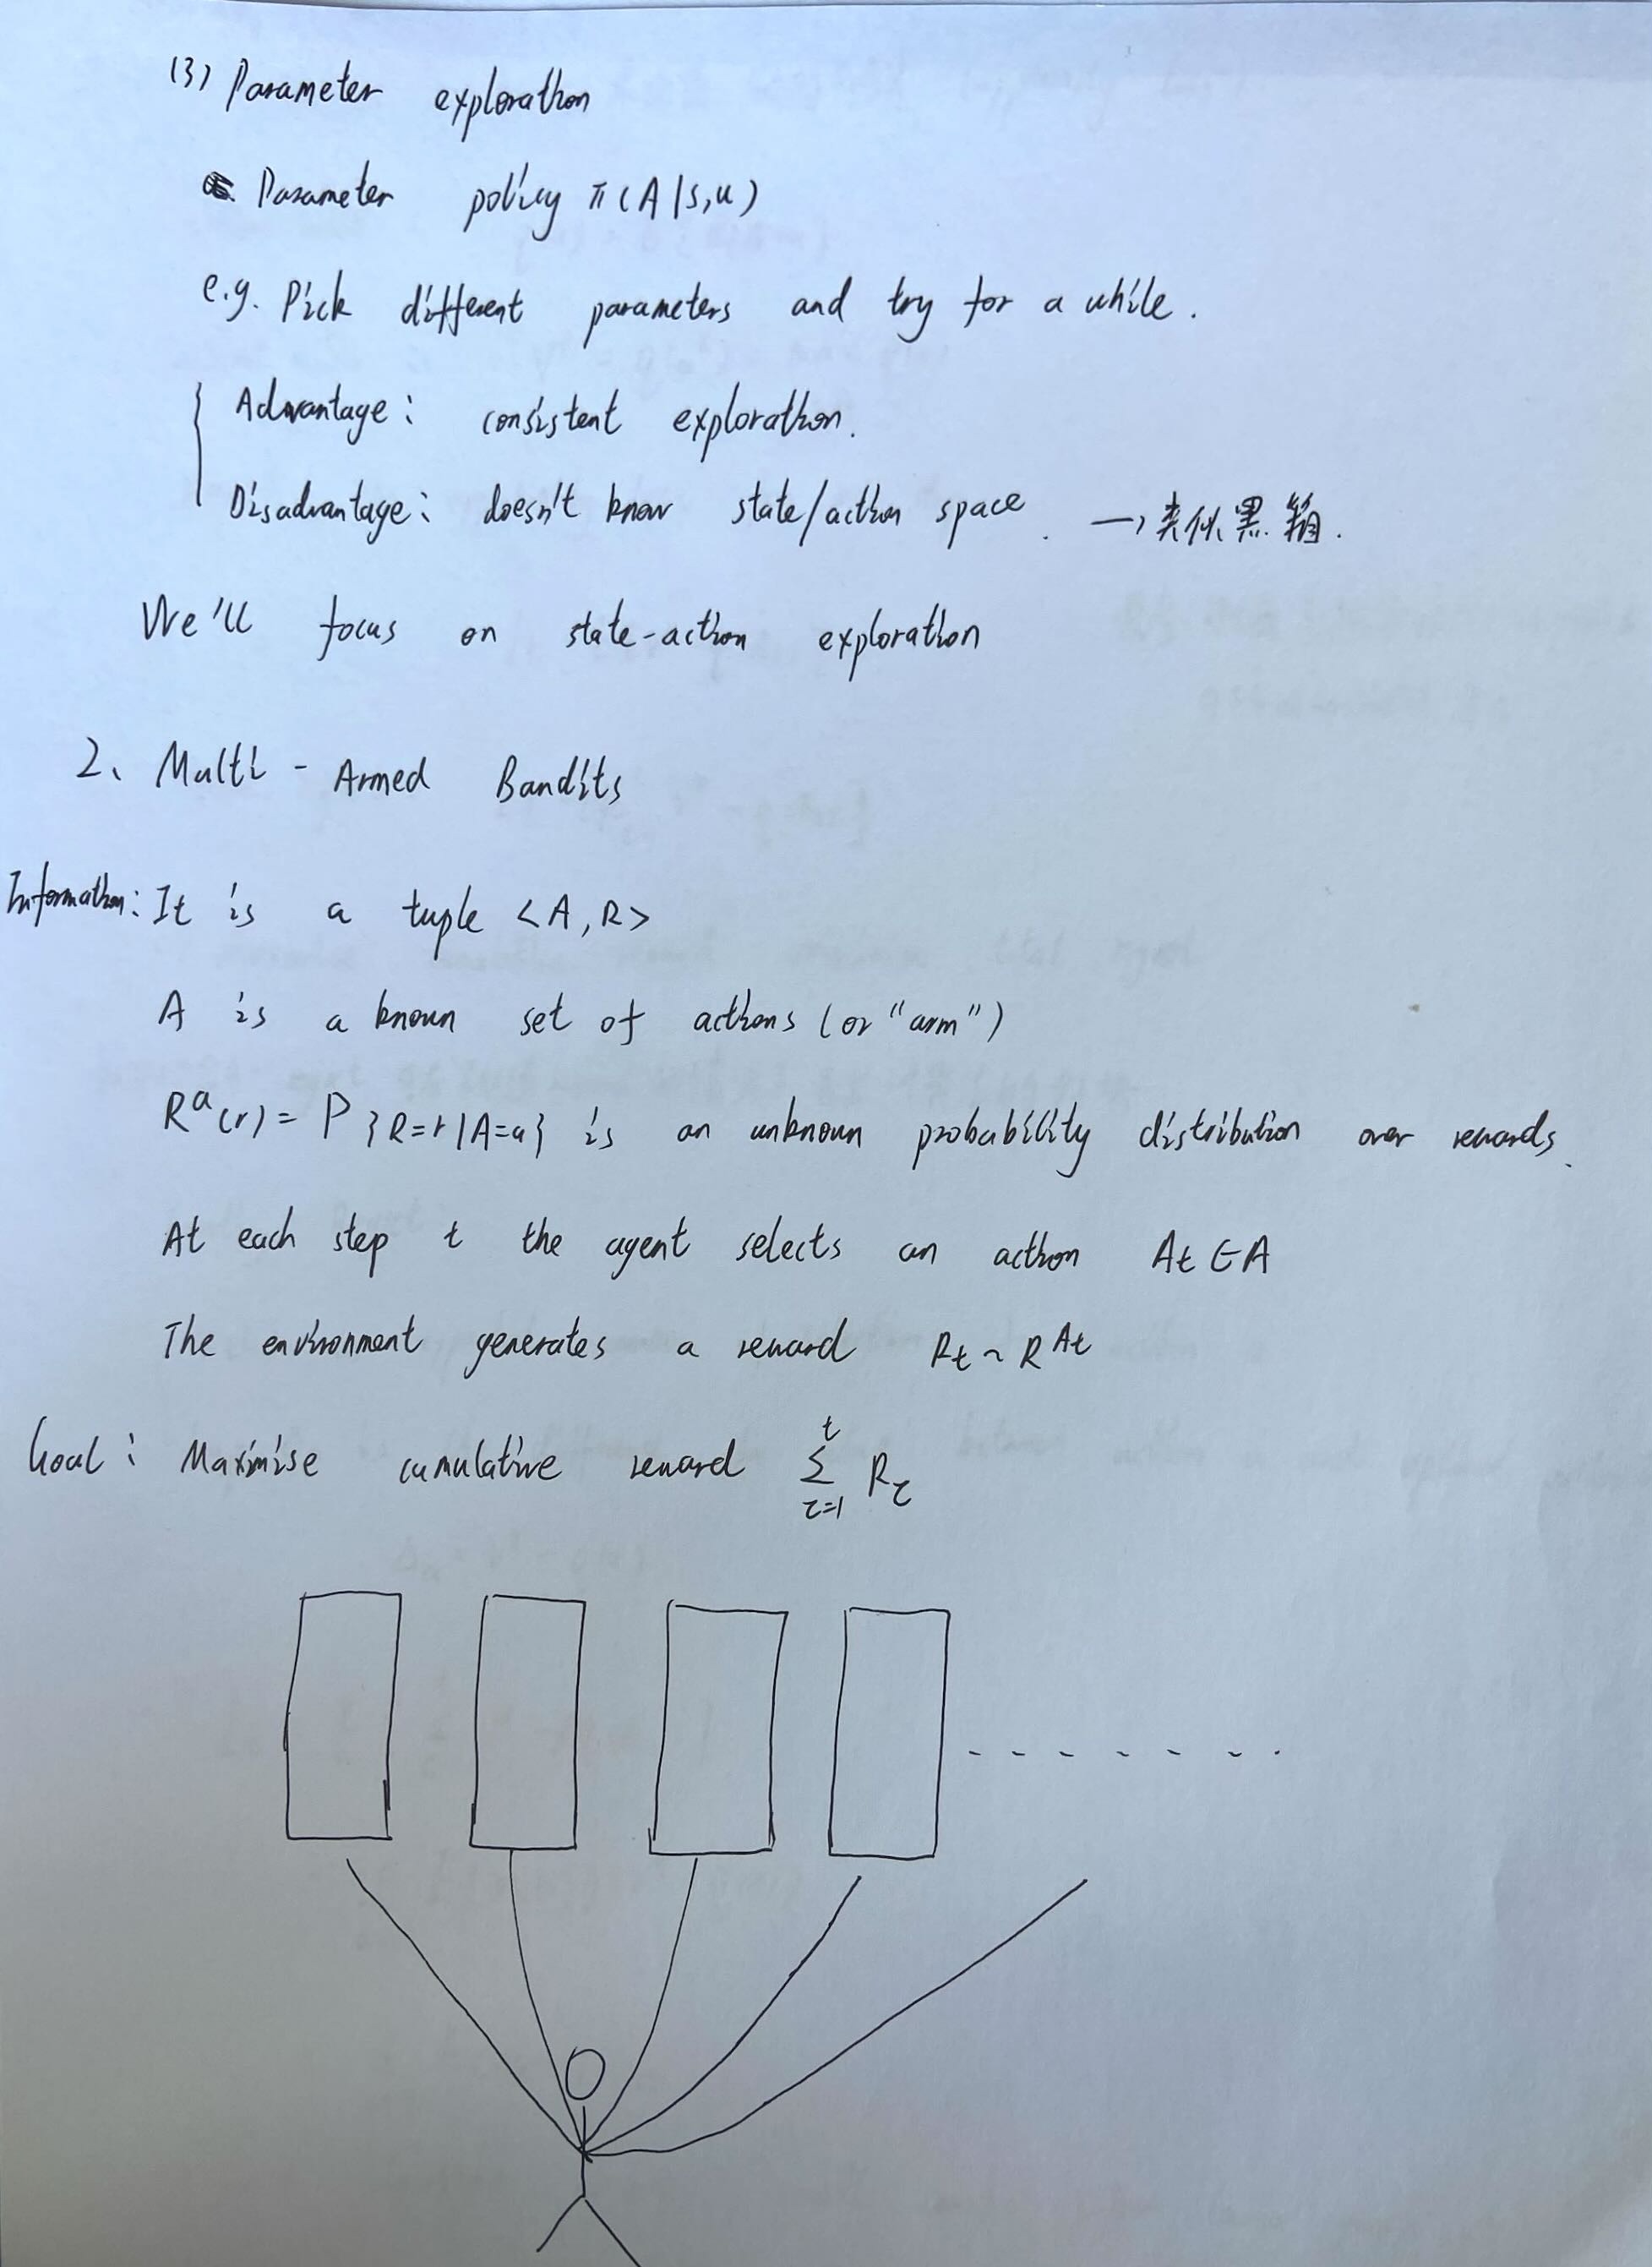 (3) Parameter exploration
Parameter policy π(A|s,u)
e.g. Pick different parameters and try for a while.
Advantage: consistent exploration.
Disadvantage: doesn't know state/action space. → 类似黑箱.
We'll focus on state-action exploration
2、Multi-Armed Bandits
Information: It is a tuple <A,R>
A is a known set of actions (or "arm")
Rᵃ(r) = P{R=r|A=a} is an unknown probability distribution over rewards.
At each step t the agent selects an action At∈A
The environment generates a reward Rt ~ R^At
Goal: Maximise cumulative reward Σ_{τ=1}^{t} R_τ